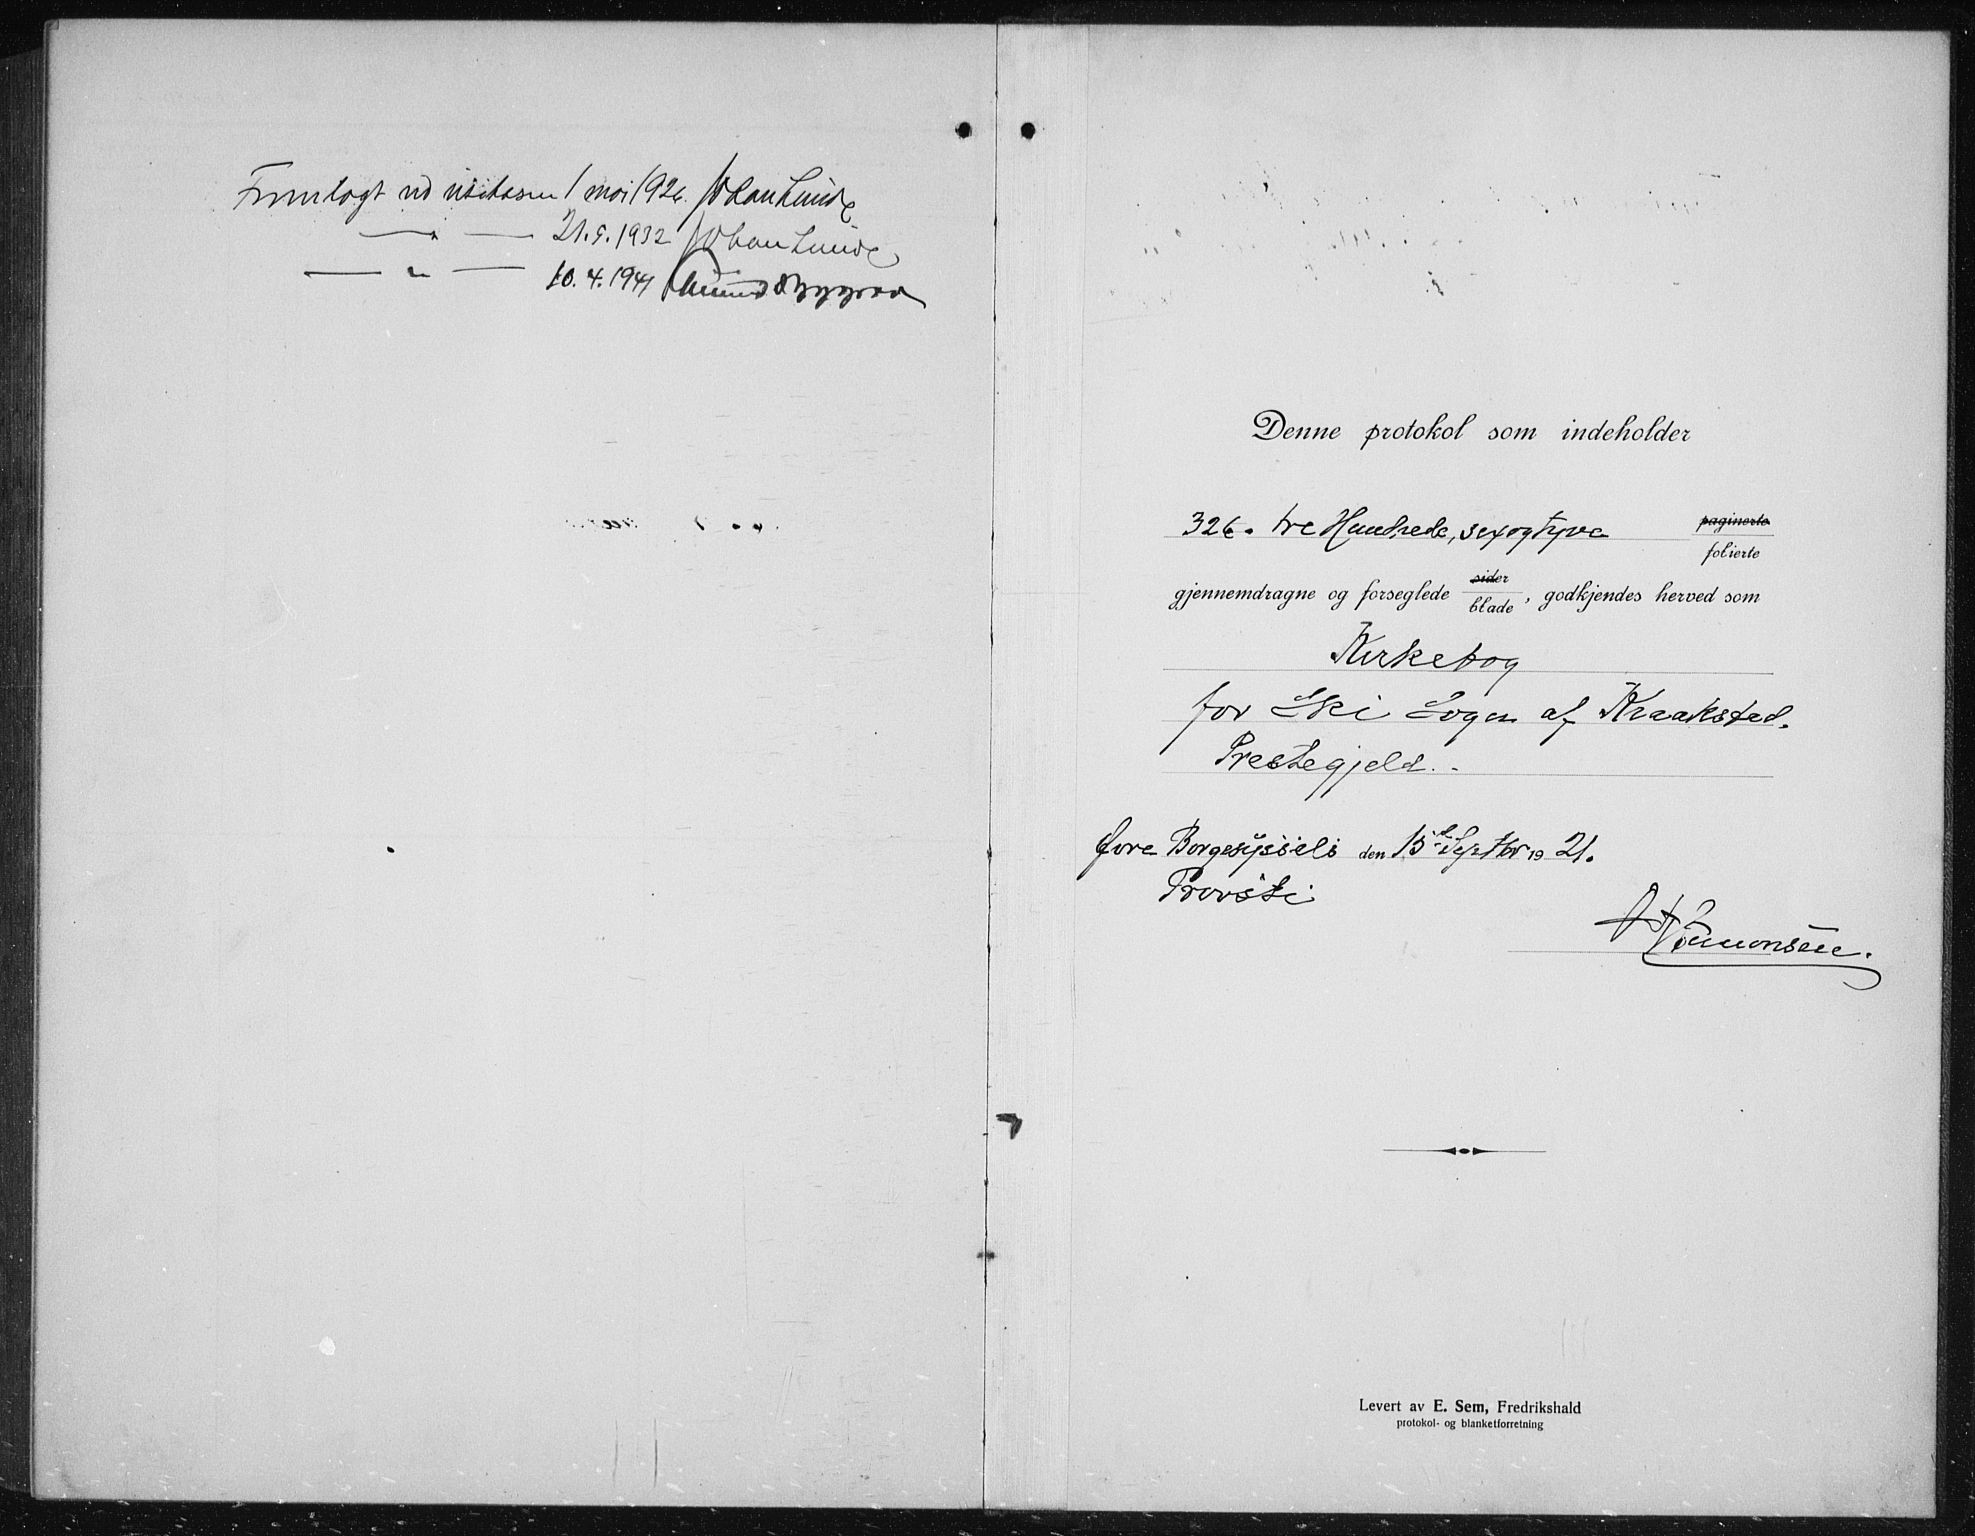 Fremlagt ved visitasen 1 mai 1926. Johan Lunde
— " — 21.5.1932 Johan Lunde
— " — 10.4.1941
Denne protokol som indeholder
326. tre Hundrede, sexogtyve paginerte
folierte
gjennemdragne og forseglede sider
blade, godkjendes herved som
Kirkebog
for Ski Sogn af Kraakstad.
Prestegjeld.
Øvre Borgesyssels den 15de Septbr 1921.
Provsti
Simonsen.
Levert av E. Sem, Fredrikshald
protokol- og blanketforretning